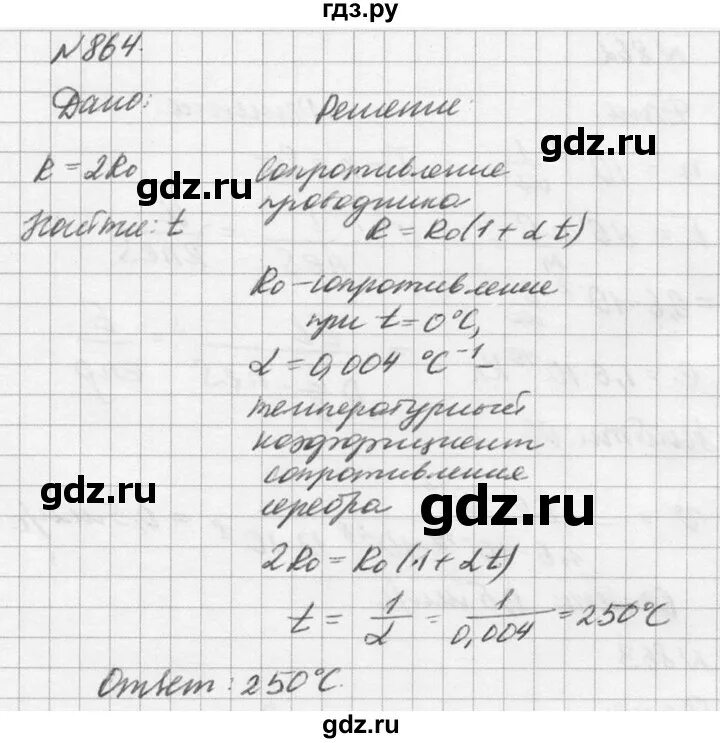 гдз.ру
№864.
Дано:
Решение:
gdz.ru
R = 2R₀
Сопротивление
gdz.ru
проводника
Найти: t
R = R₀(1 + αt)
R₀ – сопротивление
при t = 0°C,
α = 0,004 °C⁻¹ –
температурный
коэффициент
сопротивления
gdz.ru
серебра
gdz.ru
2R₀ = R₀(1 + αt)
t = 1/α = 1/0,004 = 250°C
Ответ: 250°C.
gdz.ru